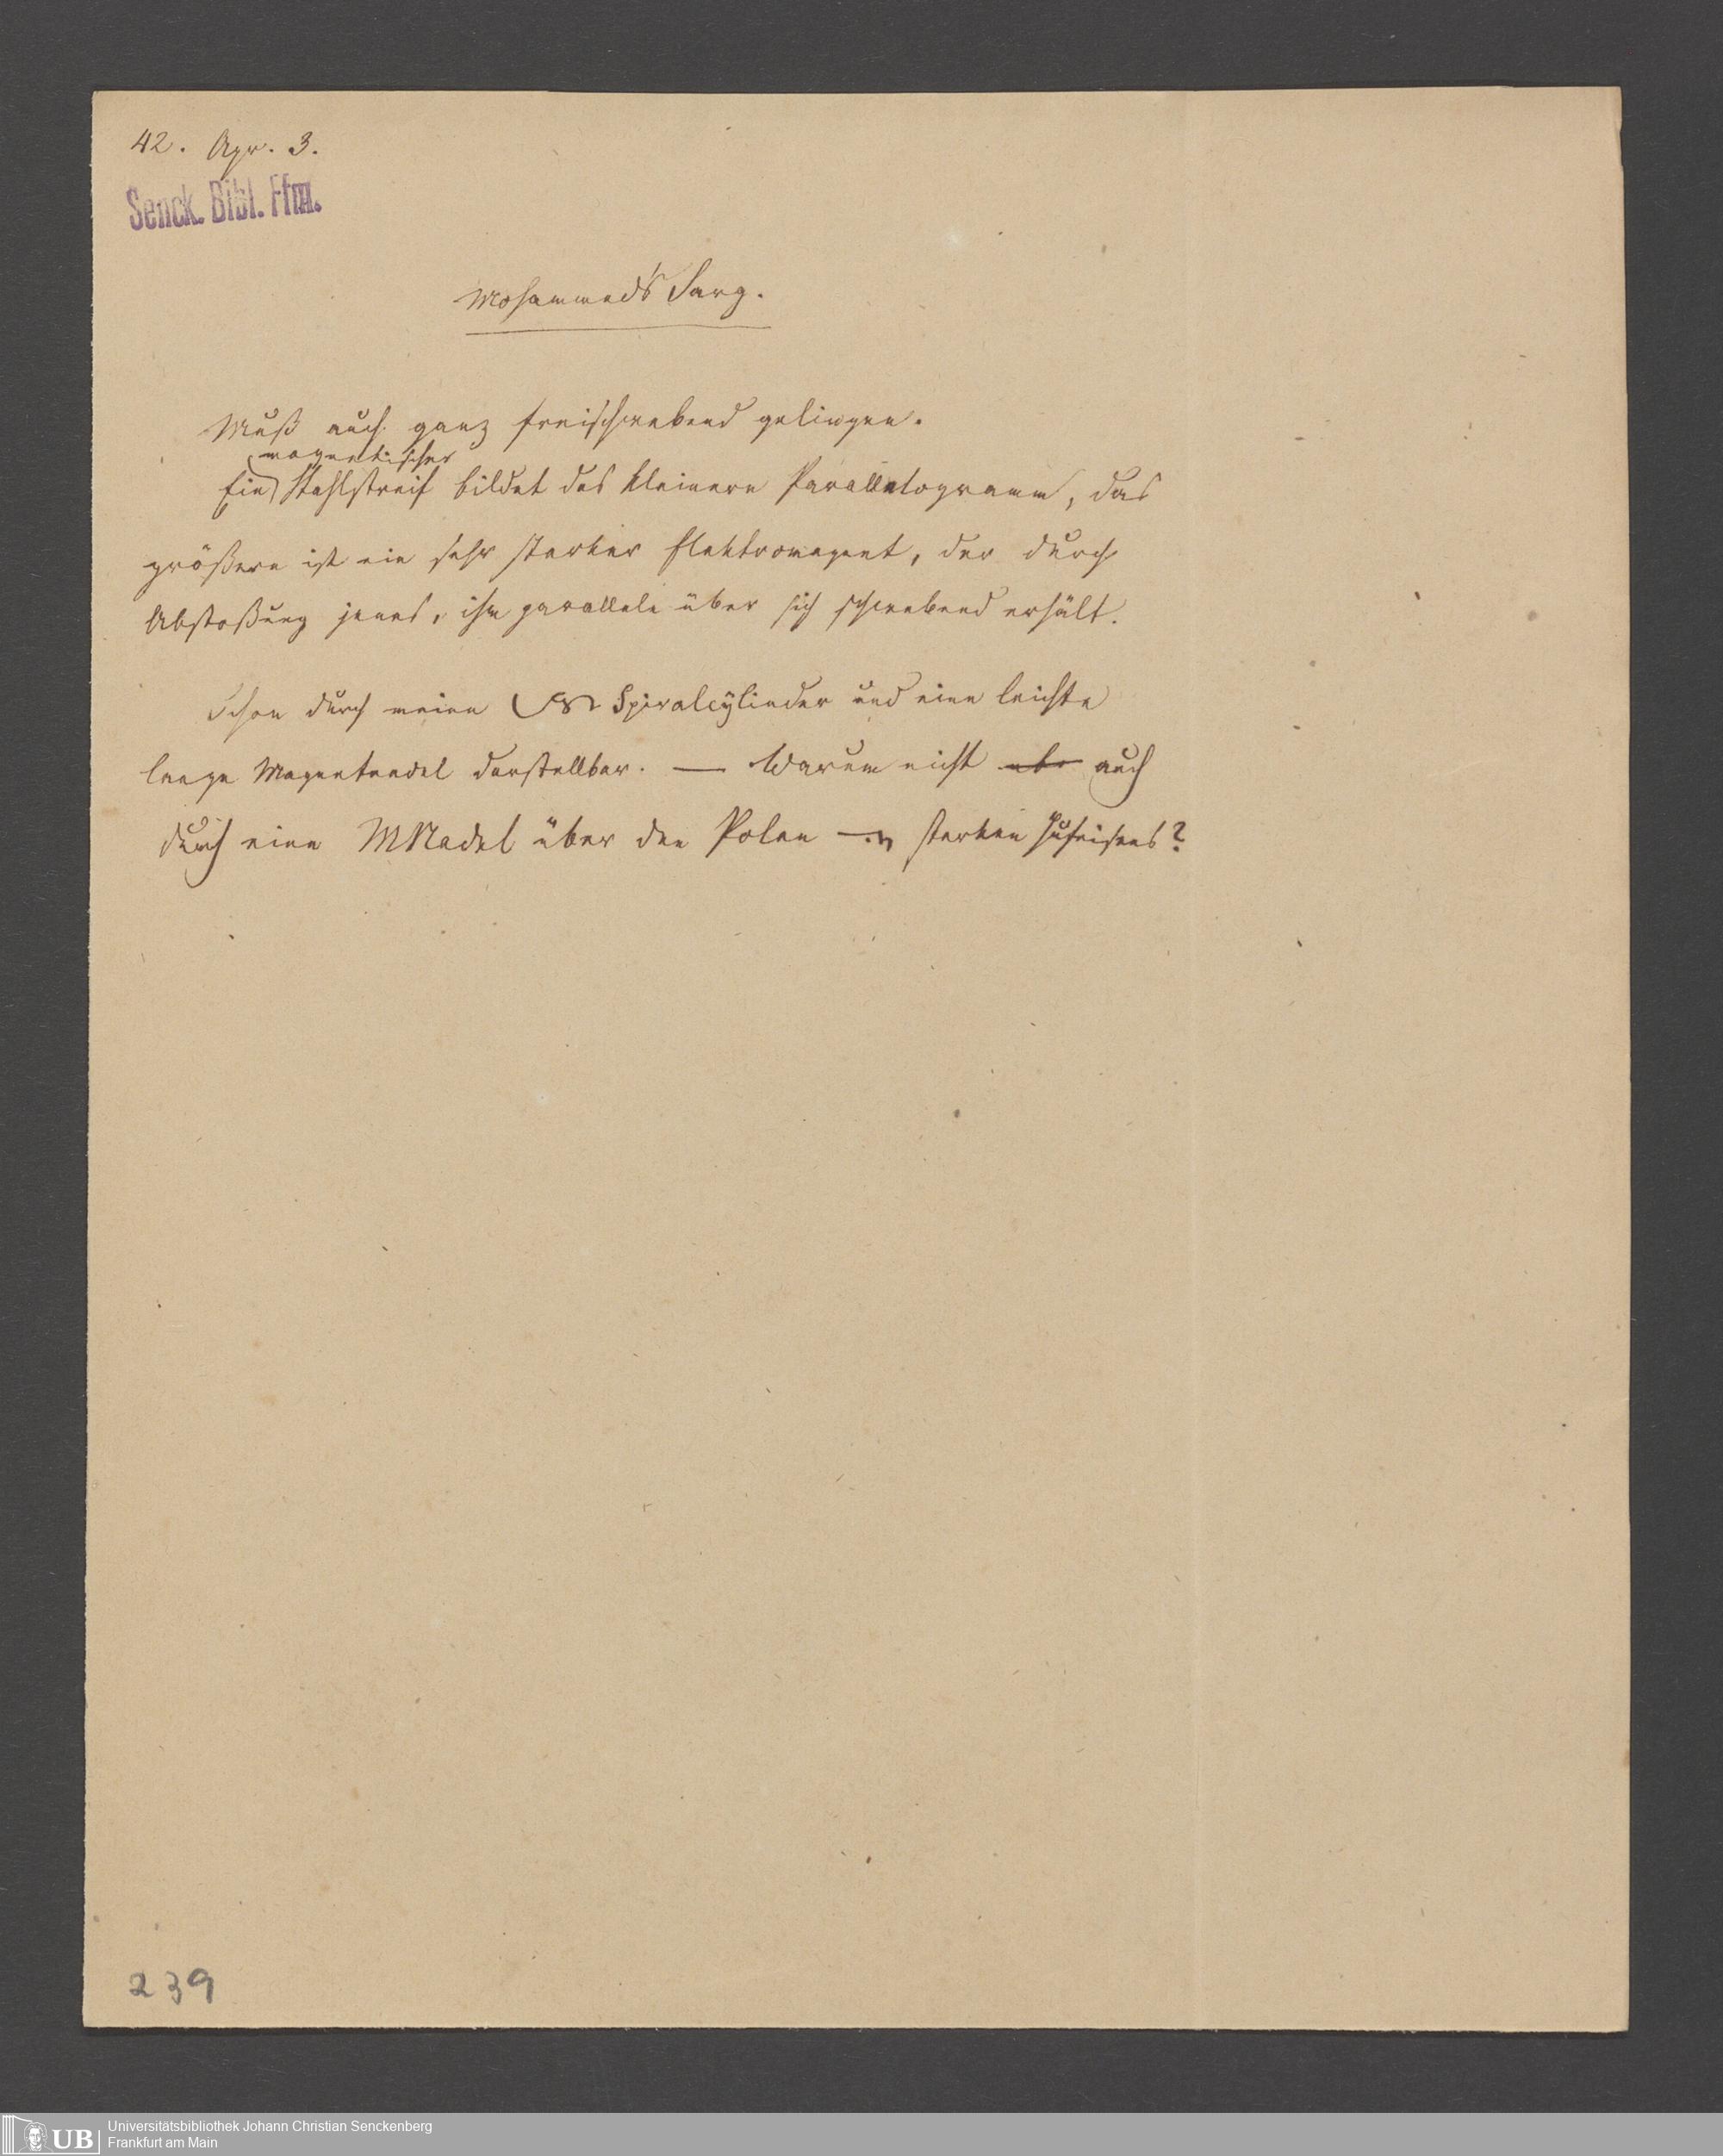 42. Apr. 3.
Senck. Bibl. Ffm.
Mohammed's Sarg.
Muß auch ganz freischwebend gelingen.
magnetischer
Ein Stahlstreif bildet das kleinere Parallelogramm, das
größere ist ein sehr starker Elektromagnet, der durch
Abstoßung jenes, ihm parallele über sich schwebend erhält.
Schon durch meinen Spiralcylinder und eine leichte
lange Magnetnadel darstellbar. — Warum nicht auch
durch eine MNadel über den Polen starken Hufeisens?
239
UB
Universitätsbibliothek Johann Christian Senckenberg
Frankfurt am Main